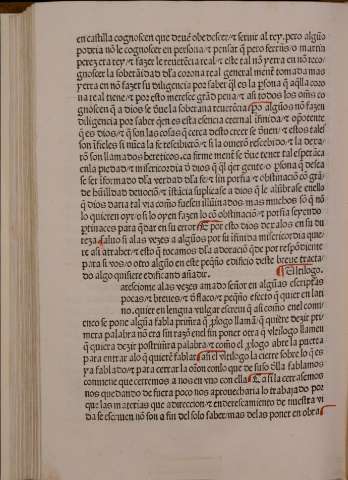 en castilla cognoscen que deuẽ obedescer ⁊ seruir al rey. pero algũo
podria nõ le cognoscer en persona ⁊ pensar q̃ pero ferrũs o martin
perez era rey ⁊ fazer le reuerẽcia real ⁊ este tal nõ yerra en nõ reco
gnoscer la soberãidad d̃la corona real general mente tomada mas
yerra en nõ fazer su diligencia por saber q̃l es la p̃sona q̃ aq̃lla coro
na real tiene ⁊ por esto meresce grãd pena ⁊ asi todos los oms̃ co
gnoscen q̃ a dios se deue la soberana reuerẽcia p̃o algũos nõ fazen
diligencia por saber q̃en es esta esencia eternal infinida ⁊ om̃potente
q̃ es dios ⁊ q̃ son las cosas q̃ cerca desto creer se deuen ⁊ estos tales
son ĩfieles si nũca la fe rescibierõ ⁊ si la ouierõ rescebido ⁊ la dexa
rõ son llamados hereticos. ca firme mente se deue tener tal esperãça
en la piedad ⁊ misericordia d̃ dios q̃ q̃l q̃er gente o p̃sona q̃ desea
se ser ĩformado d̃la verdad d̃la fe ⁊ sin porfia ⁊ obstinaciõ cõ grã
de humildad deuociõ ⁊ ĩstãcia suplicase a dios q̃ le alũbrase enello
q̃ dios daria tal via como fuesen illuĩados. mas muchos sõ q̃ nõ
lo quieren oyr o si lo oyen fazen lo cõ obstinaciõ ⁊ porfia seyendo
ptinaces para q̃dar en su error ⁋ E por esto dios dexalos en su du
reza saluo si alas vezes a algũos por su ĩfinida misericordia quie
re asi atraher ⁊ esto q̃ tocamos d̃la adoraciõ q̃de por respõdiente
para si vos o otro algũo en este peq̃ño edificio deste breue tracta
do algo quisiere edificando añadir. ⁋ El vltilogo.
aesciome alas vezes amado señor en algũas escripturas
pocas ⁊ breues ⁊ d̃ flaco ⁊ peq̃ño efecto q̃ quier en lati
no. quier en lengua vulgar escreui q̃ asi como enel comi
enço se pone algũa fabla prim̃a q̃ p̃logo llamã q̃ quiere dezir pri
mera palabra nõ era sin razõ enel fin poner otra q̃ vltilogo llamen
q̃ quiera dezir postrimera palabra ⁊ como el p̃logo abre la puerta
para entrar alo q̃ quierẽ fablar asi el vltilogo la cierre sobre lo q̃ es
ya fablado ⁊ para cerrar la oçon conlo que de suso ella fablamos
conuiene que cerremos a nos en vno con ella ⁋ Ca si la cerrasemos
nos quedando de fuera poco nos aprouecharia lo trabajado por
que las materias que a direccion ⁊ enderesçamiento de nuestra vi
da se escriuen nõ son a fin del solo saber mas de las poner en obra